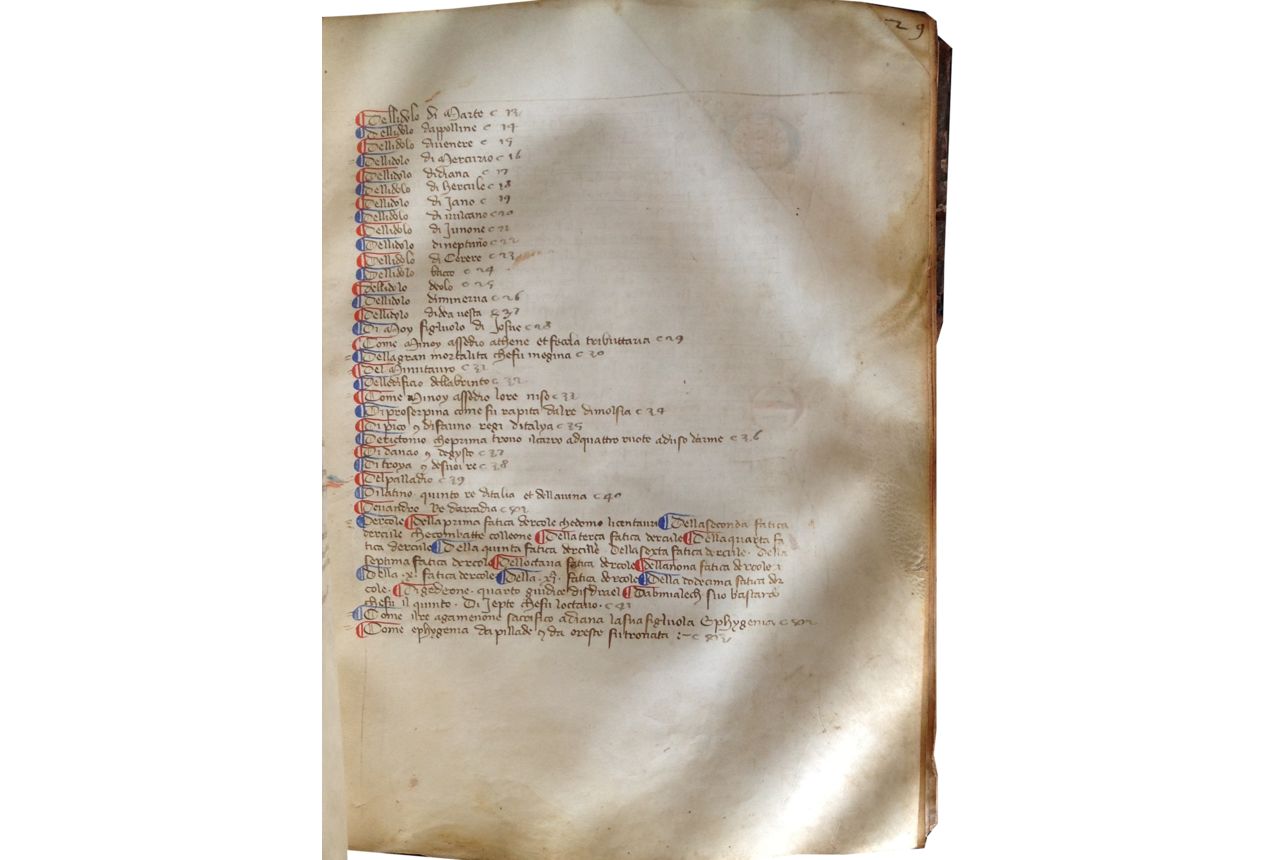 29
Dellidolo di Marte c 13
Dellidolo dappolline c 14
Dellidolo diuenere c 15
Dellidolo di Mercurio c 16
Dellidolo didiana c 17
Dellidolo di hercule c 18
Dellidolo di Jano c 19
Dellidolo di uulcano c 20
Dellidolo di Junone c 21
Dellidolo dineptuno c 22
Dellidolo di Cerere c 23
Dellidolo bacco c 24
Dellidolo deolo c 25
Dellidolo diminerua c 26
Dellidolo didea uesta c 27
Di Moy figluolo di Josue c 28
Come Minoy assedio athene et fecela tributtaria c 29
Della gran mortalita chefu inegina c 30
Del Minutauro c 31
Delledificio dellabrinto c 32
Come Minoy assedio lore niso c 33
Di proserpina come fu rapita dalre dimolsia c 34
Di pico 9 difauno regi ditalya c 35
Derictonio cheprima trouo ilcarro adquattro ruote aduso darme c 36
Di danao 9 degysto c 37
Di troya 9 desuoi re c 38
Del palladio c 39
Di latino quinto re ditalia et dellauina c 40
Deuandro Re darcadia c
Dercole Della prima fatica dercole chedomo licentauri Della seconda fatica
dercule checombatte colleone Della terca fatica dercule Della quarta fa
tica dercule Della quinta fatica dercule Della sexta fatica dercule. Della
septima fatica dercole Delloctaua fatica dercole della nona fatica dercole
Della .x. fatica dercole Della .xj. fatica dercole Della dodecima fatica der
cole. Di gedeone. quarto giudice disdrael Dabmialech suo bastardo
chefu il quinto. Di Jepte chefu loctauo. c 41
Come ilre agamenone sacrifico adiana lasua figluola Ephygenia c
Come ephygenia da pillade 9 da oreste fu trouata :~ c